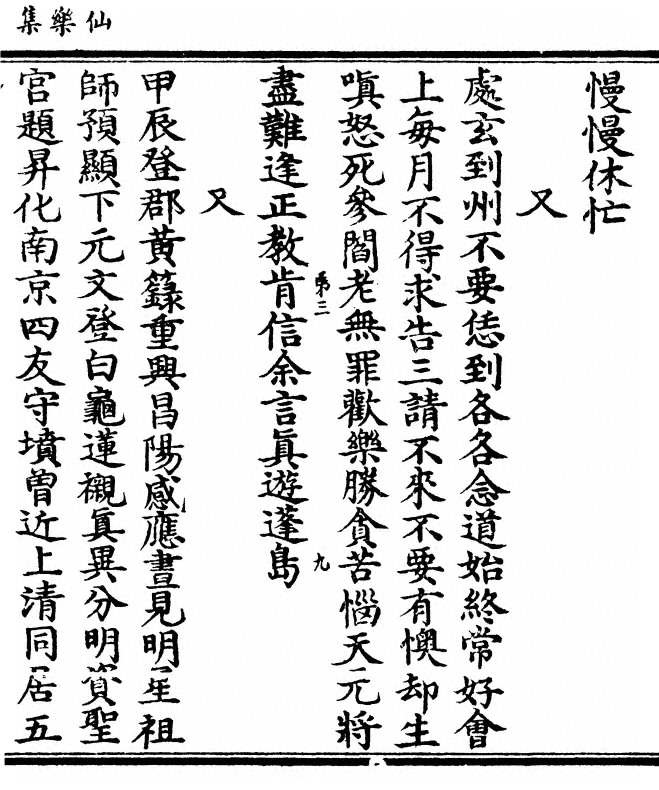 仙樂集
慢慢休忙
又
處玄到州不要恁到各各念道始終常好會
上每月不得求告三請不來不要有懊却生
嗔怒死參閻老無罪歡樂勝貪苦惱天元將
盡難逢正教肯信余言眞遊蓬島
第三
九
又
甲辰登郡黃籙重興昌陽感應晝見明星祖
師預顯下元文登白龜蓮襯眞異分明資聖
宮題昇化南京四友守墳曾近上清同居五